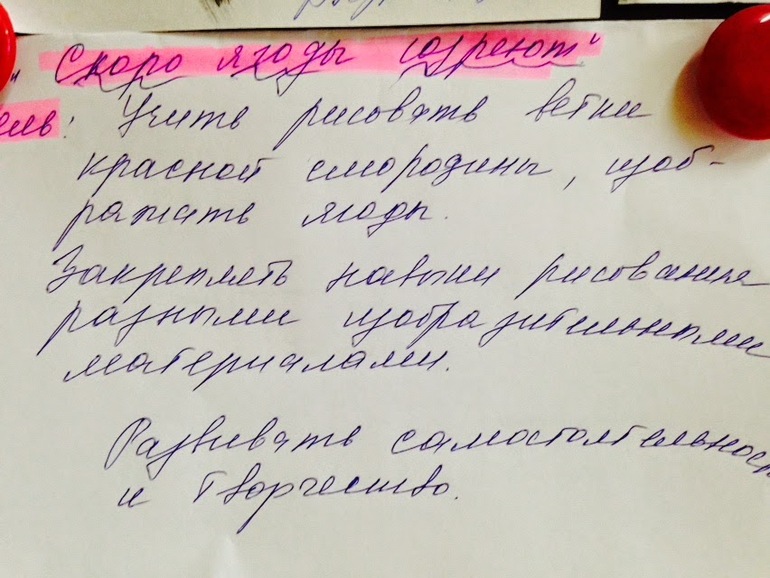 "Скоро ягоды созреют"
ель: Учить рисовать ветки
красной смородины, изоб-
ражать ягоды.
Закреплять навыки рисования
разными изобразительными
материалами.
Развивать самостоятельност
и творчество.